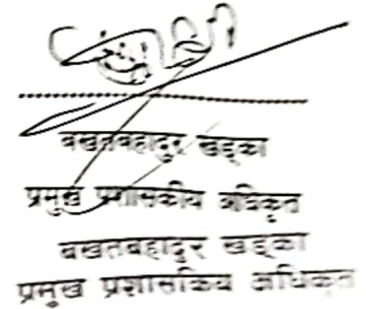 बखतबहादुर खड्का
प्रमुख प्रशासकीय अधिकृत
बखतबहादुर खड्का
प्रमुख प्रशासकिय अधिकृत